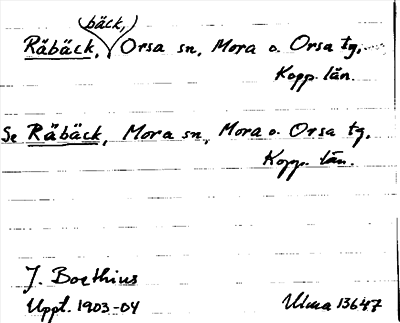 bäck,
Råbäck, Orsa sn, Mora o. Orsa tg,
Kopp. län.
Se Råbäck, Mora sn, Mora o. Orsa tg,
Kopp. län.
J. Boëthius
Uppt. 1903-04 Ulma 13647